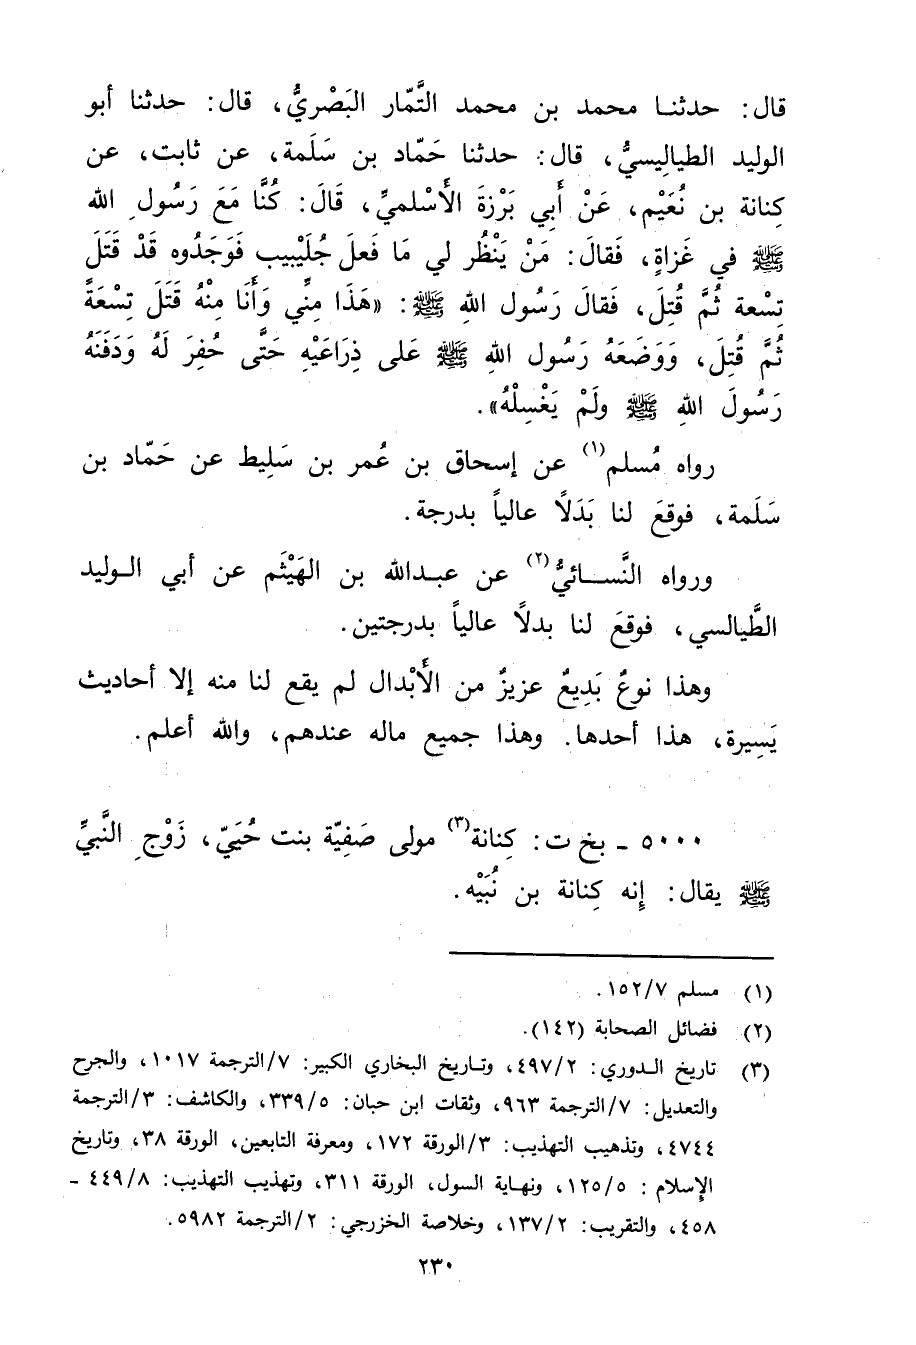 قال: حدثنا محمد بن محمد التَّمّار البَصْريُّ، قال: حدثنا أبو
الوليد الطيالِيسيُّ، قال: حدثنا حَمّاد بن سَلَمة، عن ثابت، عن
كِنانة بن نُعَيْم، عَنْ أَبي بَرْزةَ الأَسْلميِّ، قَالَ: كُنَّا مَعَ رَسُولِ الله
ﷺ في غَزاةٍ، فَقالَ: مَنْ يَنْظُر لي مَا فَعلَ جُلَيْبيب فَوَجَدُوه قَدْ قَتَلَ
تِسْعة ثُمَّ قُتِلَ، فَقالَ رَسُول اللهِ ﷺ: «هَذَا مِنِّي وَأَنَا مِنْهُ قَتَلَ تِسْعَةً
ثُمَّ قُتِلَ، وَوَضَعَهُ رَسُول اللهِ ﷺ عَلى ذِرَاعَيْهِ حَتَّى حُفِرَ لَهُ وَدَفَنَهُ
رَسُولَ اللهِ ﷺ ولَمْ يَغْسِلْهُ».
رواه مُسلم(١) عن إسحاق بن عُمر بن سَلِيط عن حَمّاد بن
سَلَمة، فوقعَ لنا بَدَلاً عالياً بدرجة.
ورواه النَّسائيُّ(٢) عن عبدالله بن الهَيْثَم عن أبي الوليد
الطَّيالسي، فوقعَ لنا بدلاً عالياً بدرجتين.
وهذا نوعٌ بَدِيعٌ عزيزٌ من الأَبْدال لم يقع لنا منه إلا أحاديث
يَسِيرة، هذا أحدها. وهذا جميع ماله عندهم، والله أعلم.
٥٠٠٠ - بخ ت: كِنانة(٣) مولى صَفِيّة بنت حُيَيّ، زَوْجِ النَّبيِّ
ﷺ يقال: إنه كِنانة بن نُبَيْه.
(١) مسلم ١٥٢/٧.
(٢) فضائل الصحابة (١٤٢).
(٣) تاريخ الدوري: ٤٩٧/٢، وتاريخ البخاري الكبير: ٧/الترجمة ١٠١٧، والجرح
والتعديل: ٧/الترجمة ٩٦٣، وثقات ابن حبان: ٣٣٩/٥، والكاشف: ٣/الترجمة
٤٧٤٤، وتذهيب التهذيب: ٣/الورقة ١٧٢، ومعرفة التابعين، الورقة ٣٨، وتاريخ
الإسلام: ١٢٥/٥، ونهاية السول، الورقة ٣١١، وتهذيب التهذيب: ٤٤٩/٨ -
٤٥٨، والتقريب: ١٣٧/٢، وخلاصة الخزرجي: ٢/الترجمة ٥٩٨٢.
٢٣٠